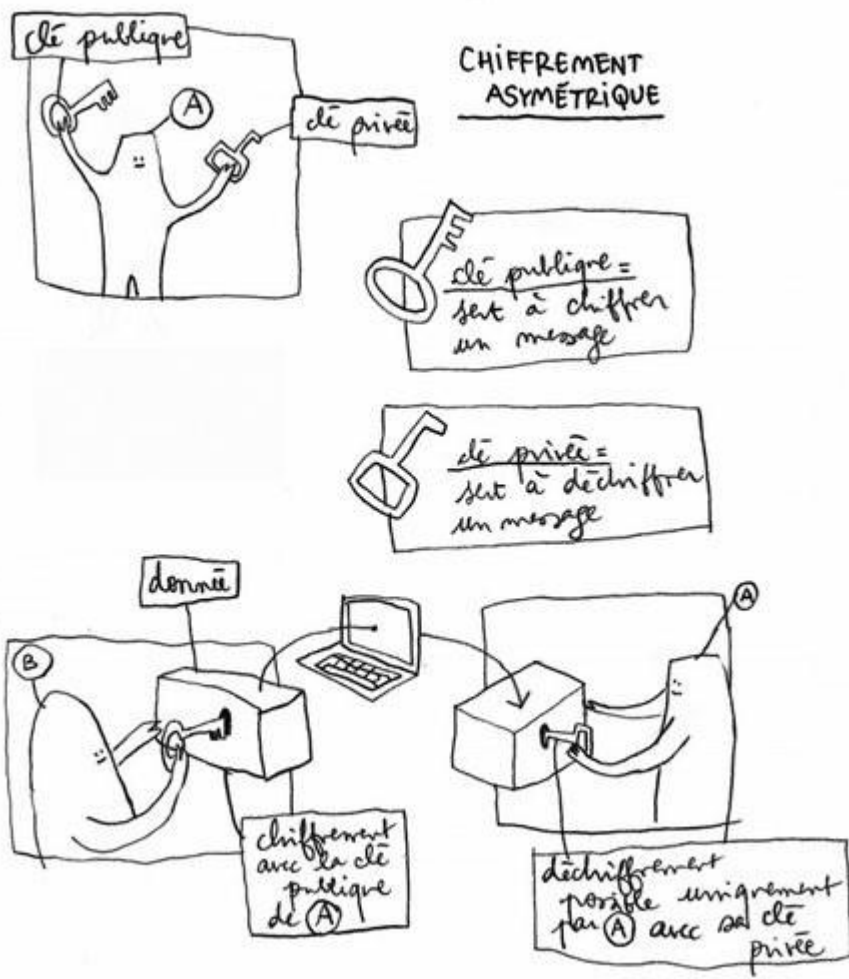 clé publique
A
clé privée
CHIFFREMENT
ASYMÉTRIQUE
clé publique =
sert à chiffrer
un message
clé privée =
sert à déchiffrer
un message
donnée
B
A
chiffrement
avec la clé
publique
de A
déchiffrement
possible uniquement
par A avec sa clé
privée